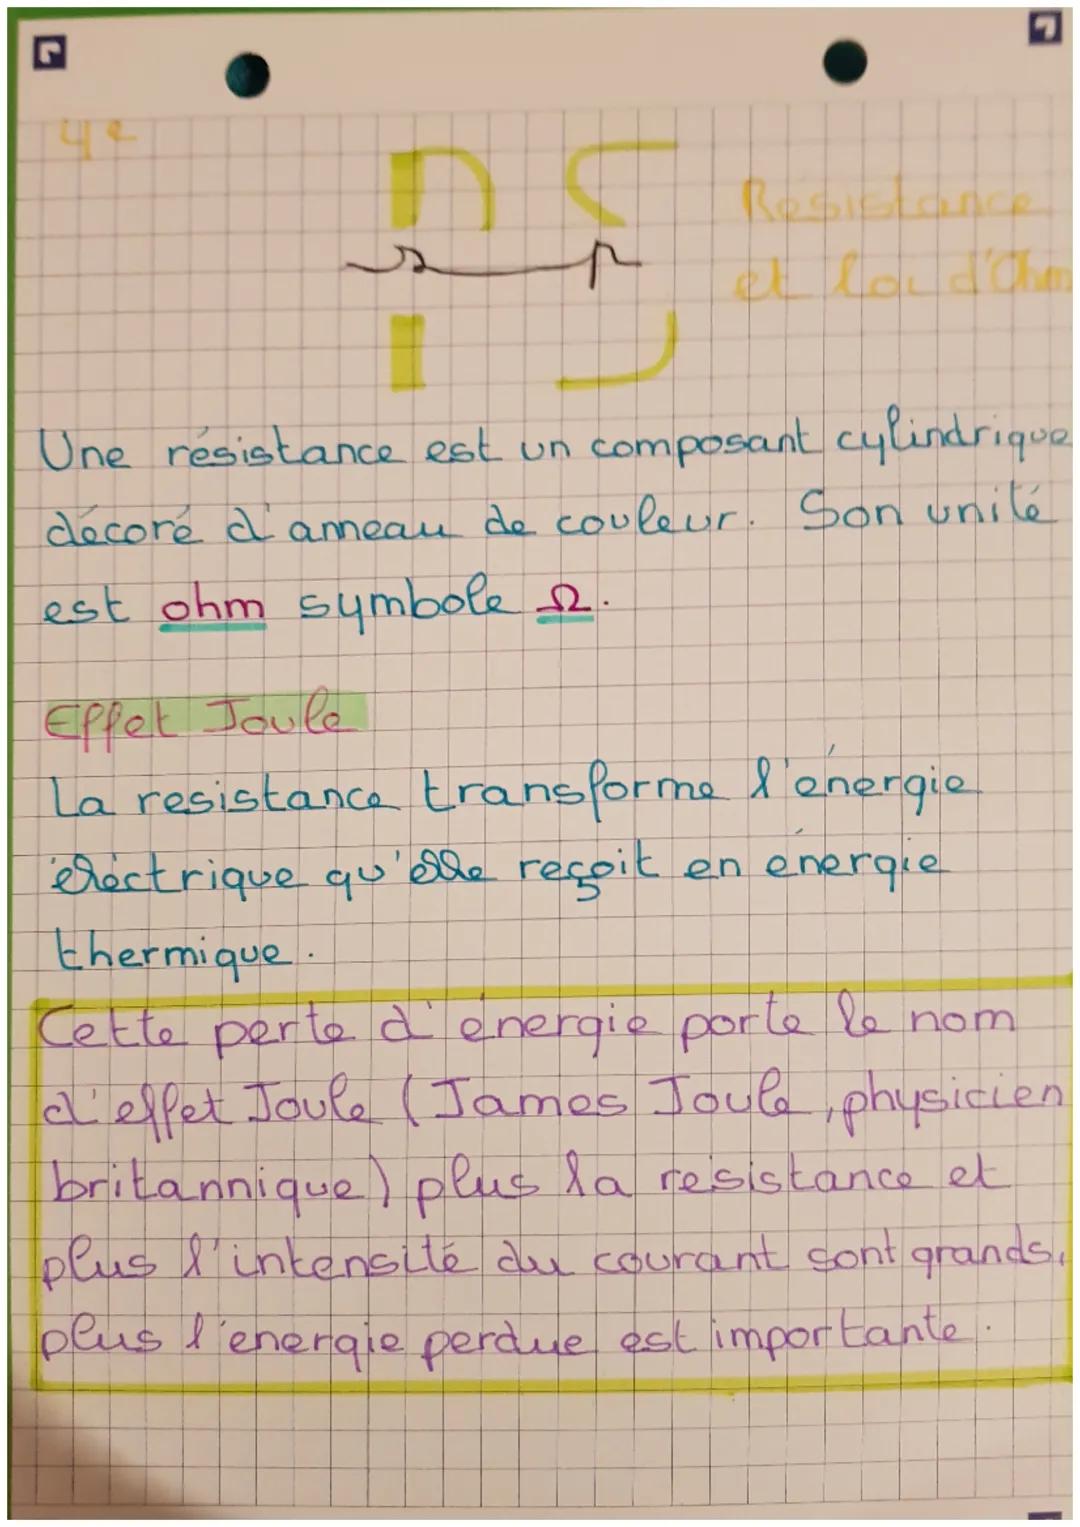 4e
Resistance
et loi d'Ohm
Une résistance est un composant cylindrique
décoré d'anneau de couleur. Son unité
est ohm symbole Ω.
Effet Joule
La resistance transforme l'énergie
éléctrique qu'elle reçoit en énergie
thermique.
Cette perte d'énergie porte le nom
d'effet Joule (James Joule, physicien
britannique) plus la resistance et
plus l'intensité du courant sont grands,
plus l'energie perdue est importante.